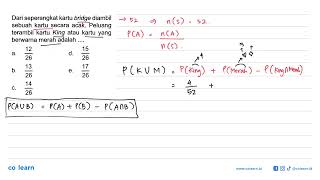 Dari seperangkat kartu bridge diambil
sebuah kartu secara acak. Peluang
terambil kartu King atau kartu yang
berwarna merah adalah ....
a. 12/26
b. 13/26
c. 14/26
d. 15/26
e. 17/26
→ 52 ⇒ n(S) = 52
P(A) = n(A)/n(S)
P(K∪M) = P(King) + P(Merah) - P(King∩Merah)
= 4/52 +
P(A∪B) = P(A) + P(B) - P(A∩B)
co learn
www.colearn.id
@colearn.id